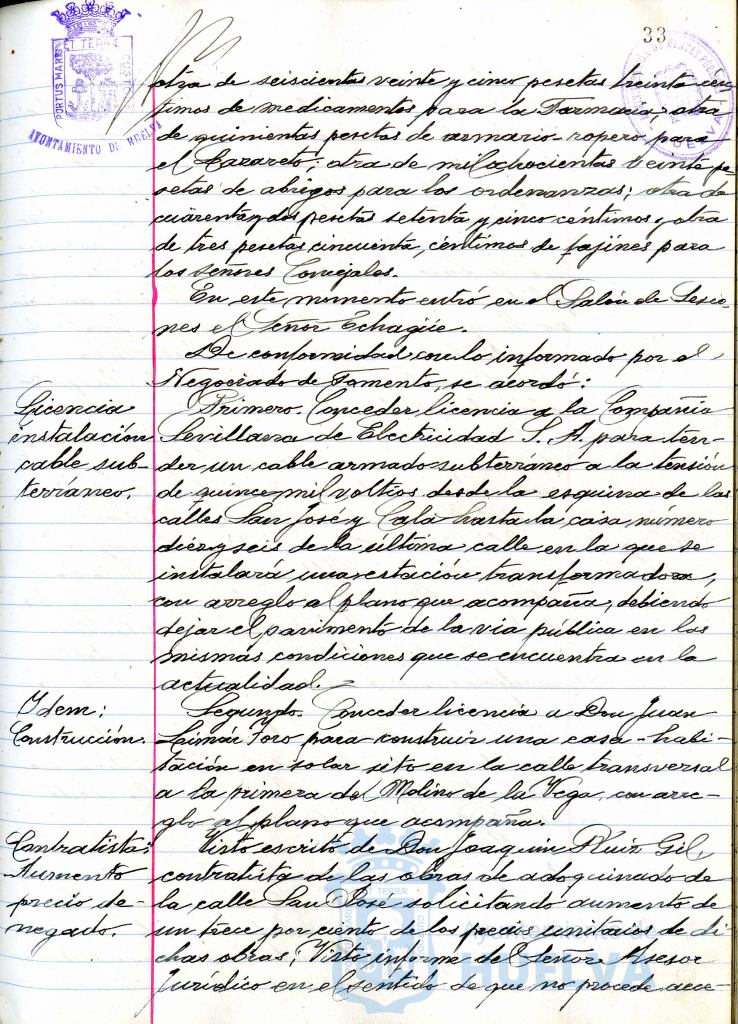 33
PORTUS MARIS ET TERRÆ CUSTODIA
AYUNTAMIENTO DE HUELVA
HUELVA
otra de seiscientas veinte y cinco pesetas treinta cén-
timos de medicamentos para la Farmacia; otra
de quinientas pesetas de armario-ropero para
el Lazareto; otra de mil ochocientas veinte pe-
setas de abrigos para los ordenanzas; otra de
cuarenta y dos pesetas setenta y cinco céntimos y otra
de tres pesetas cincuenta céntimos de fajines para
los señores Concejales.
En este momento entró en el Salón de Sesio-
nes el Señor Echagüe.
De conformidad con lo informado por el
Negociado de Fomento, se acordó:
Licencia
instalación
cable sub-
terráneo.
Primero. Conceder licencia a la Compañía
Sevillana de Electricidad S. A. para ten-
der un cable armado subterráneo a la tensión
de quince mil voltios desde la esquina de las
calles San José y Cala hasta la casa número
diez y seis de la última calle en la que se
instalará una estación transformadora,
con arreglo al plano que acompaña, debiendo
dejar el pavimento de la via pública en las
mismas condiciones que se encuentra en la
actualidad.
Idem:
Construcción.
Segundo. Conceder licencia a Don Juan
Limón Toro para construir una casa-habi-
tación en solar sito en la calle transversal
a la primera del Molino de la Vega, con arre-
glo al plano que acompaña.
Contratista:
Aumento
precio de-
negado.
Visto escrito de Don Joaquin Ruiz Gil,
contratista de las obras de adoquinado de
la calle San José solicitando aumento de
un trece por ciento de los precios unitarios de di-
chas obras; Visto informe del Señor Asesor
Jurídico en el sentido de que no procede acce-
Ayuntamiento de
HUELVA